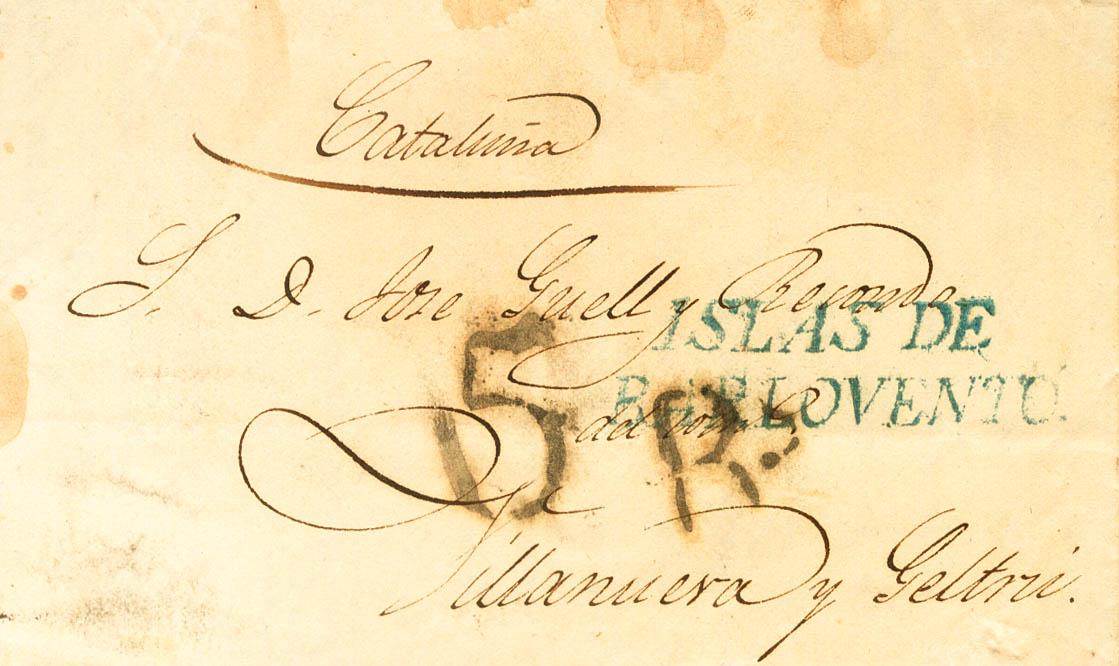 Cataluña
S. D. Jose Guell y
ISLAS DE
BARLOVENTO.
5 Rs.
del
Villanueva y Geltrú.